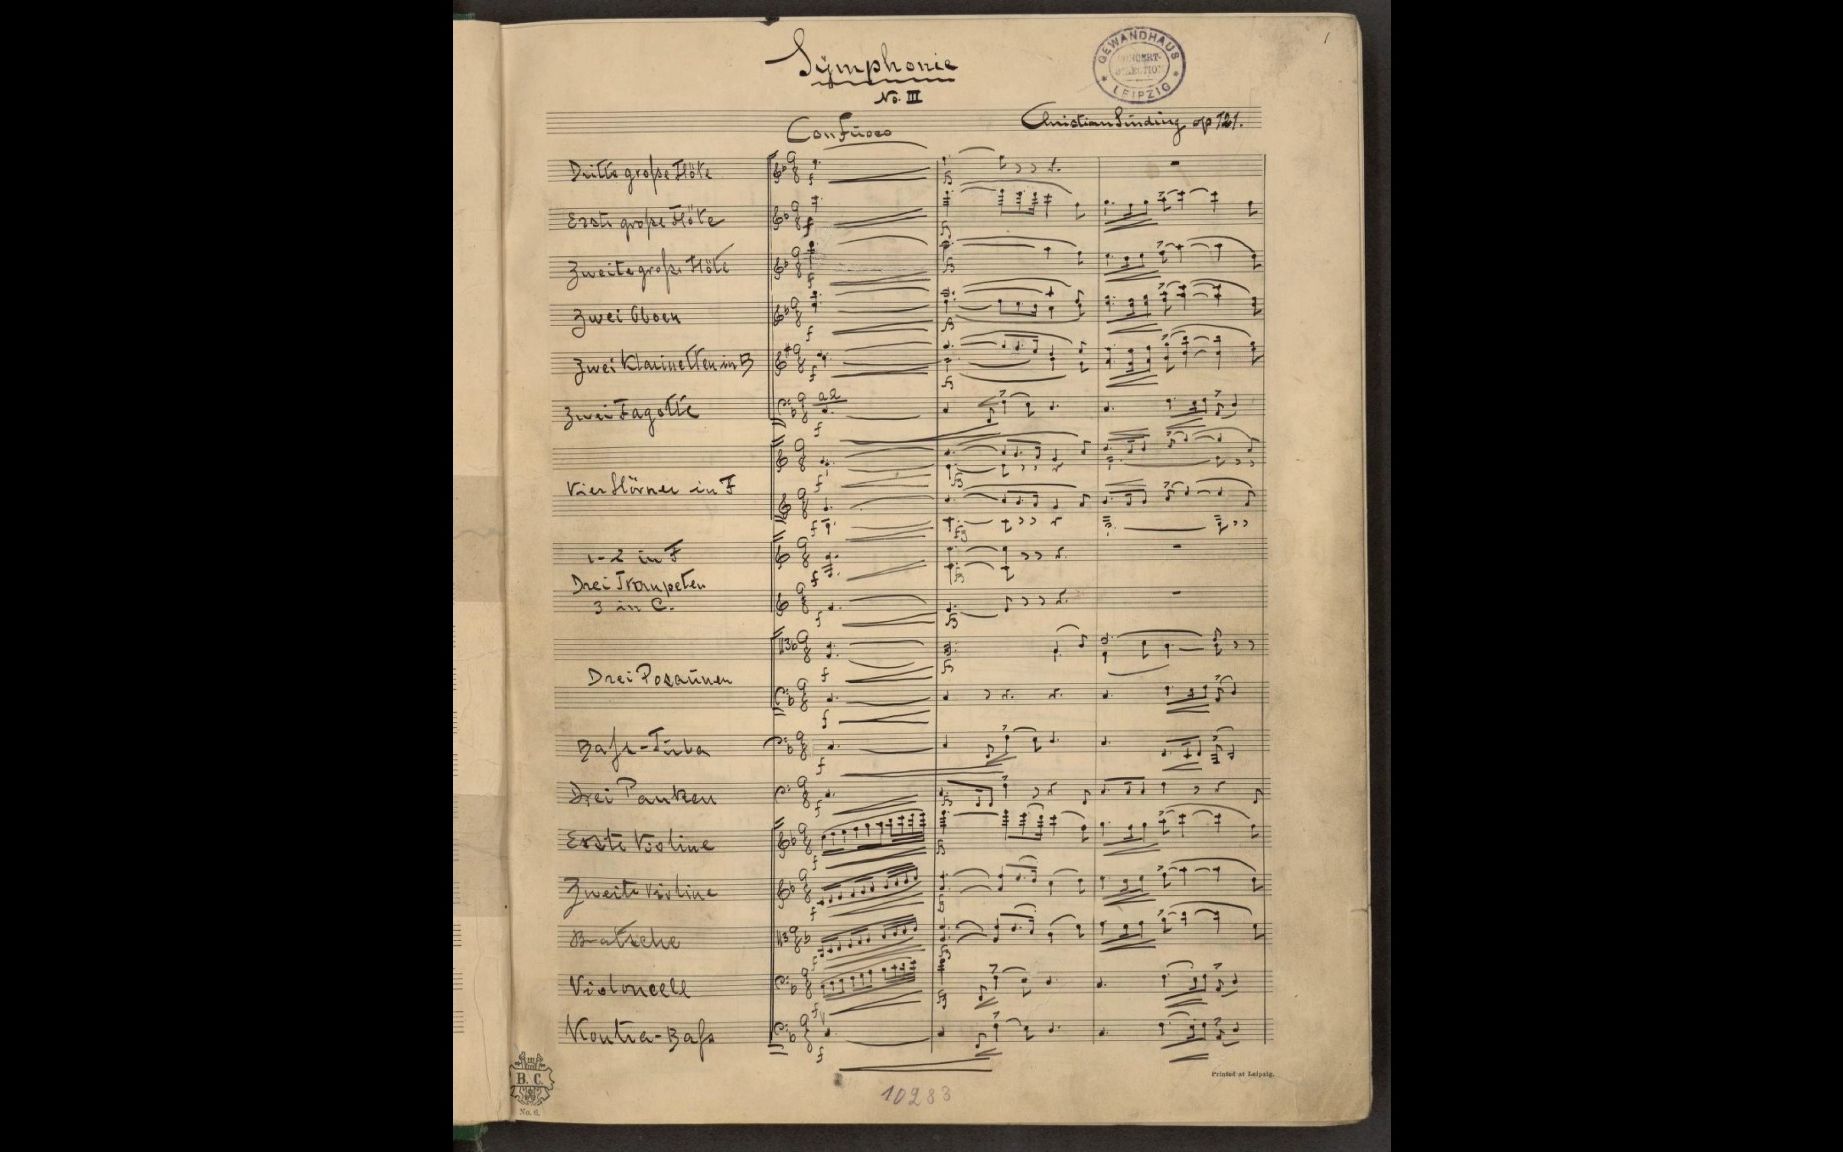 Symphonie
No. III
GEWANDHAUS
CONCERT-
DIRECTION
LEIPZIG
1
Con fuoco
Christian Sinding op 121.
Dritte große Flöte
Erste große Flöte
Zweite große Flöte
Zwei Oboen
Zwei Klarinetten in B
Zwei Fagotte
a2
Vier Hörner in F
1-2 in F
Drei Trompeten
3 in C.
Drei Posaunen
Baß-Tuba
Drei Pauken
Erste Violine
Zweite Violine
Bratsche
Violoncell
Kontra-Baß
B. C.
No. 6.
Printed at Leipzig.
10283